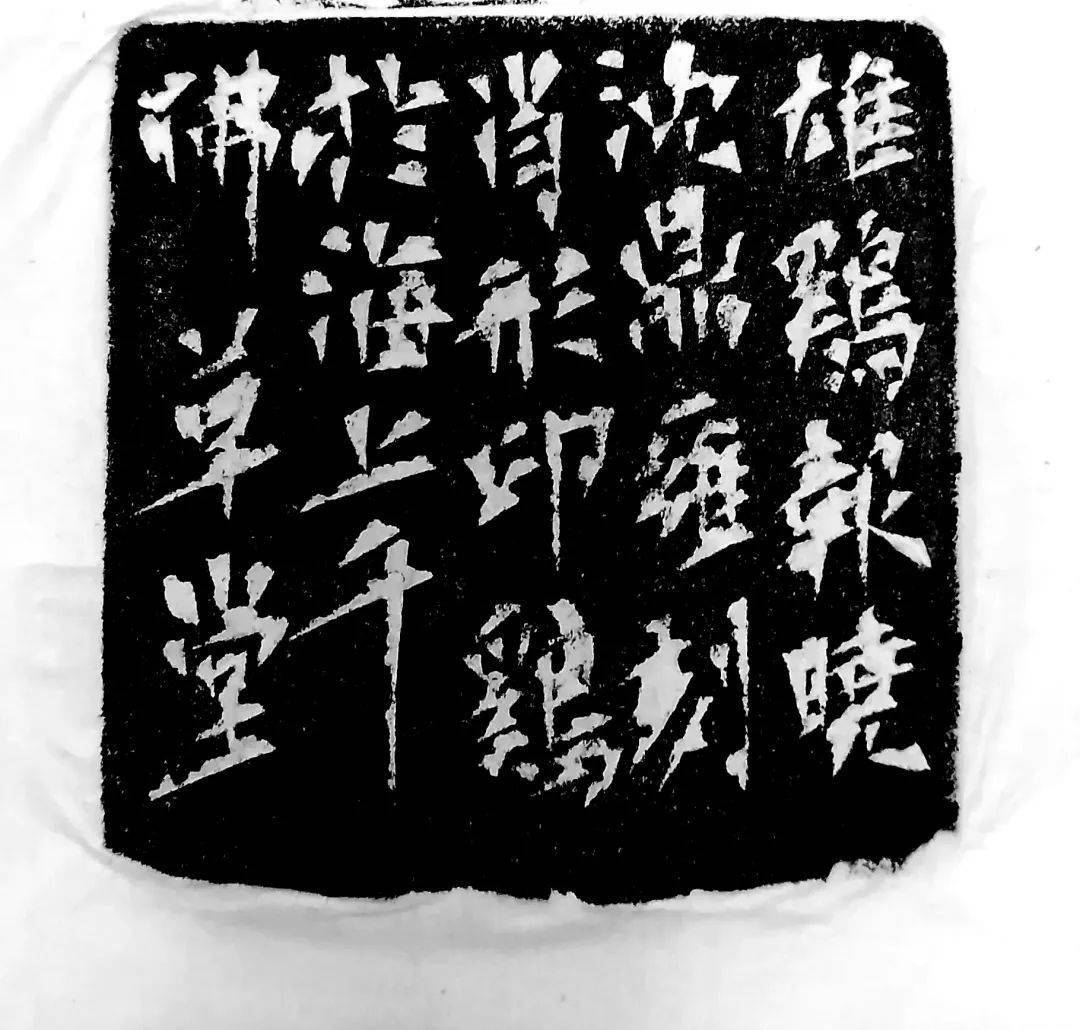 雄鷄報曉
沈鼎雍刻
肖形印鷄
於海上千
佛草堂